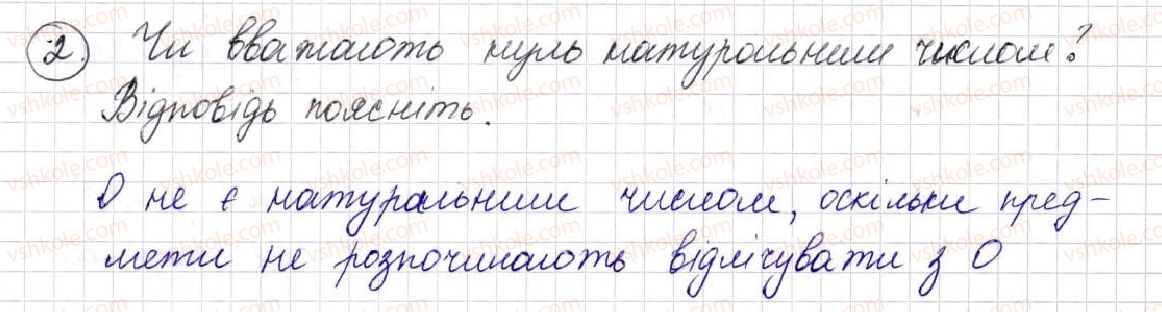 2. Чи вважають нуль натуральним числом?
Відповідь поясніть.
0 не є натуральним числом, оскільки пред-
мети не розпочинають відлічувати з 0